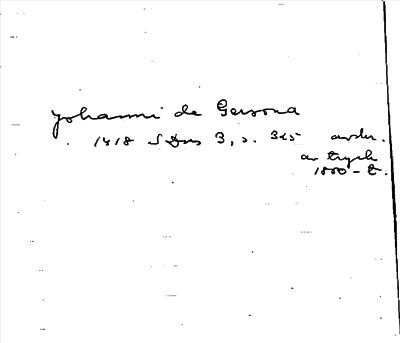 Johanni de Gersona
1418 SDns 3, s. 325 avskr.
av tryck
1800-t.